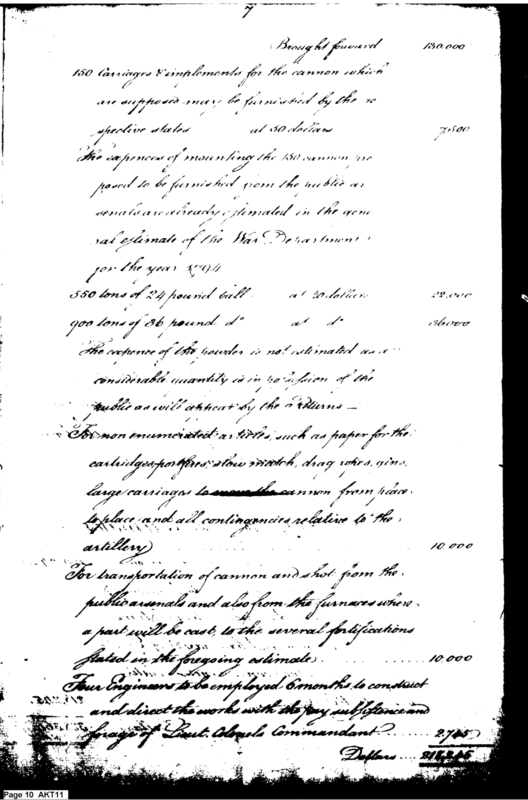 7
Brought forward 130.000
150 Carriages & implements for the cannon which
are supposed may be furnished by the re
spective states at 50 dollars 7,500
The expences of mounting the 150 cannon pro
posed to be furnished from the public ar
senals are already estimated in the gene
ral estimate of the War Department
for the year 1794
550 tons of 24 pound ball at dollars 22.000
900 tons of 36 pound do at do 36000
The expence of the powder is not estimated as a
considerable quantity is in possession of the
public as will appear by the returns —
For non enumerated articles, such as paper for the
cartridges, portfires, slow match, drag ropes, gins,
large carriages to cannon from place
to place and all contingencies relative to the
artillery 10.000
For transportation of cannon and shot from the
public arsenals and also from the furnaces where
a part will be cast, to the several fortifications
stated in the foregoing estimate 10.000
Four Engineers to be employed 6 months, to construct
and direct the works with the pay subsistence and
forage of Lieut. Colonels Commandant
Dollars
Page 10 AKT11